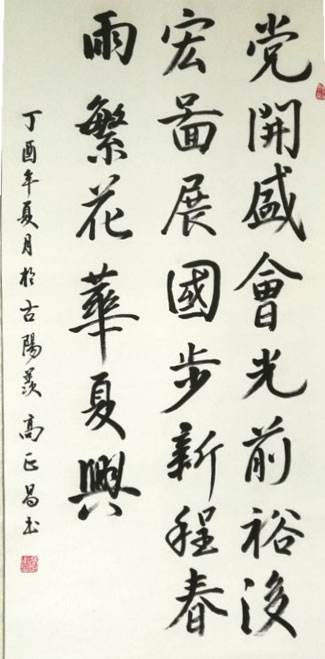 党開盛會光前裕後
宏啚展國步新程春
雨繁花華夏興
丁酉年夏月於古陽羨高正昌书